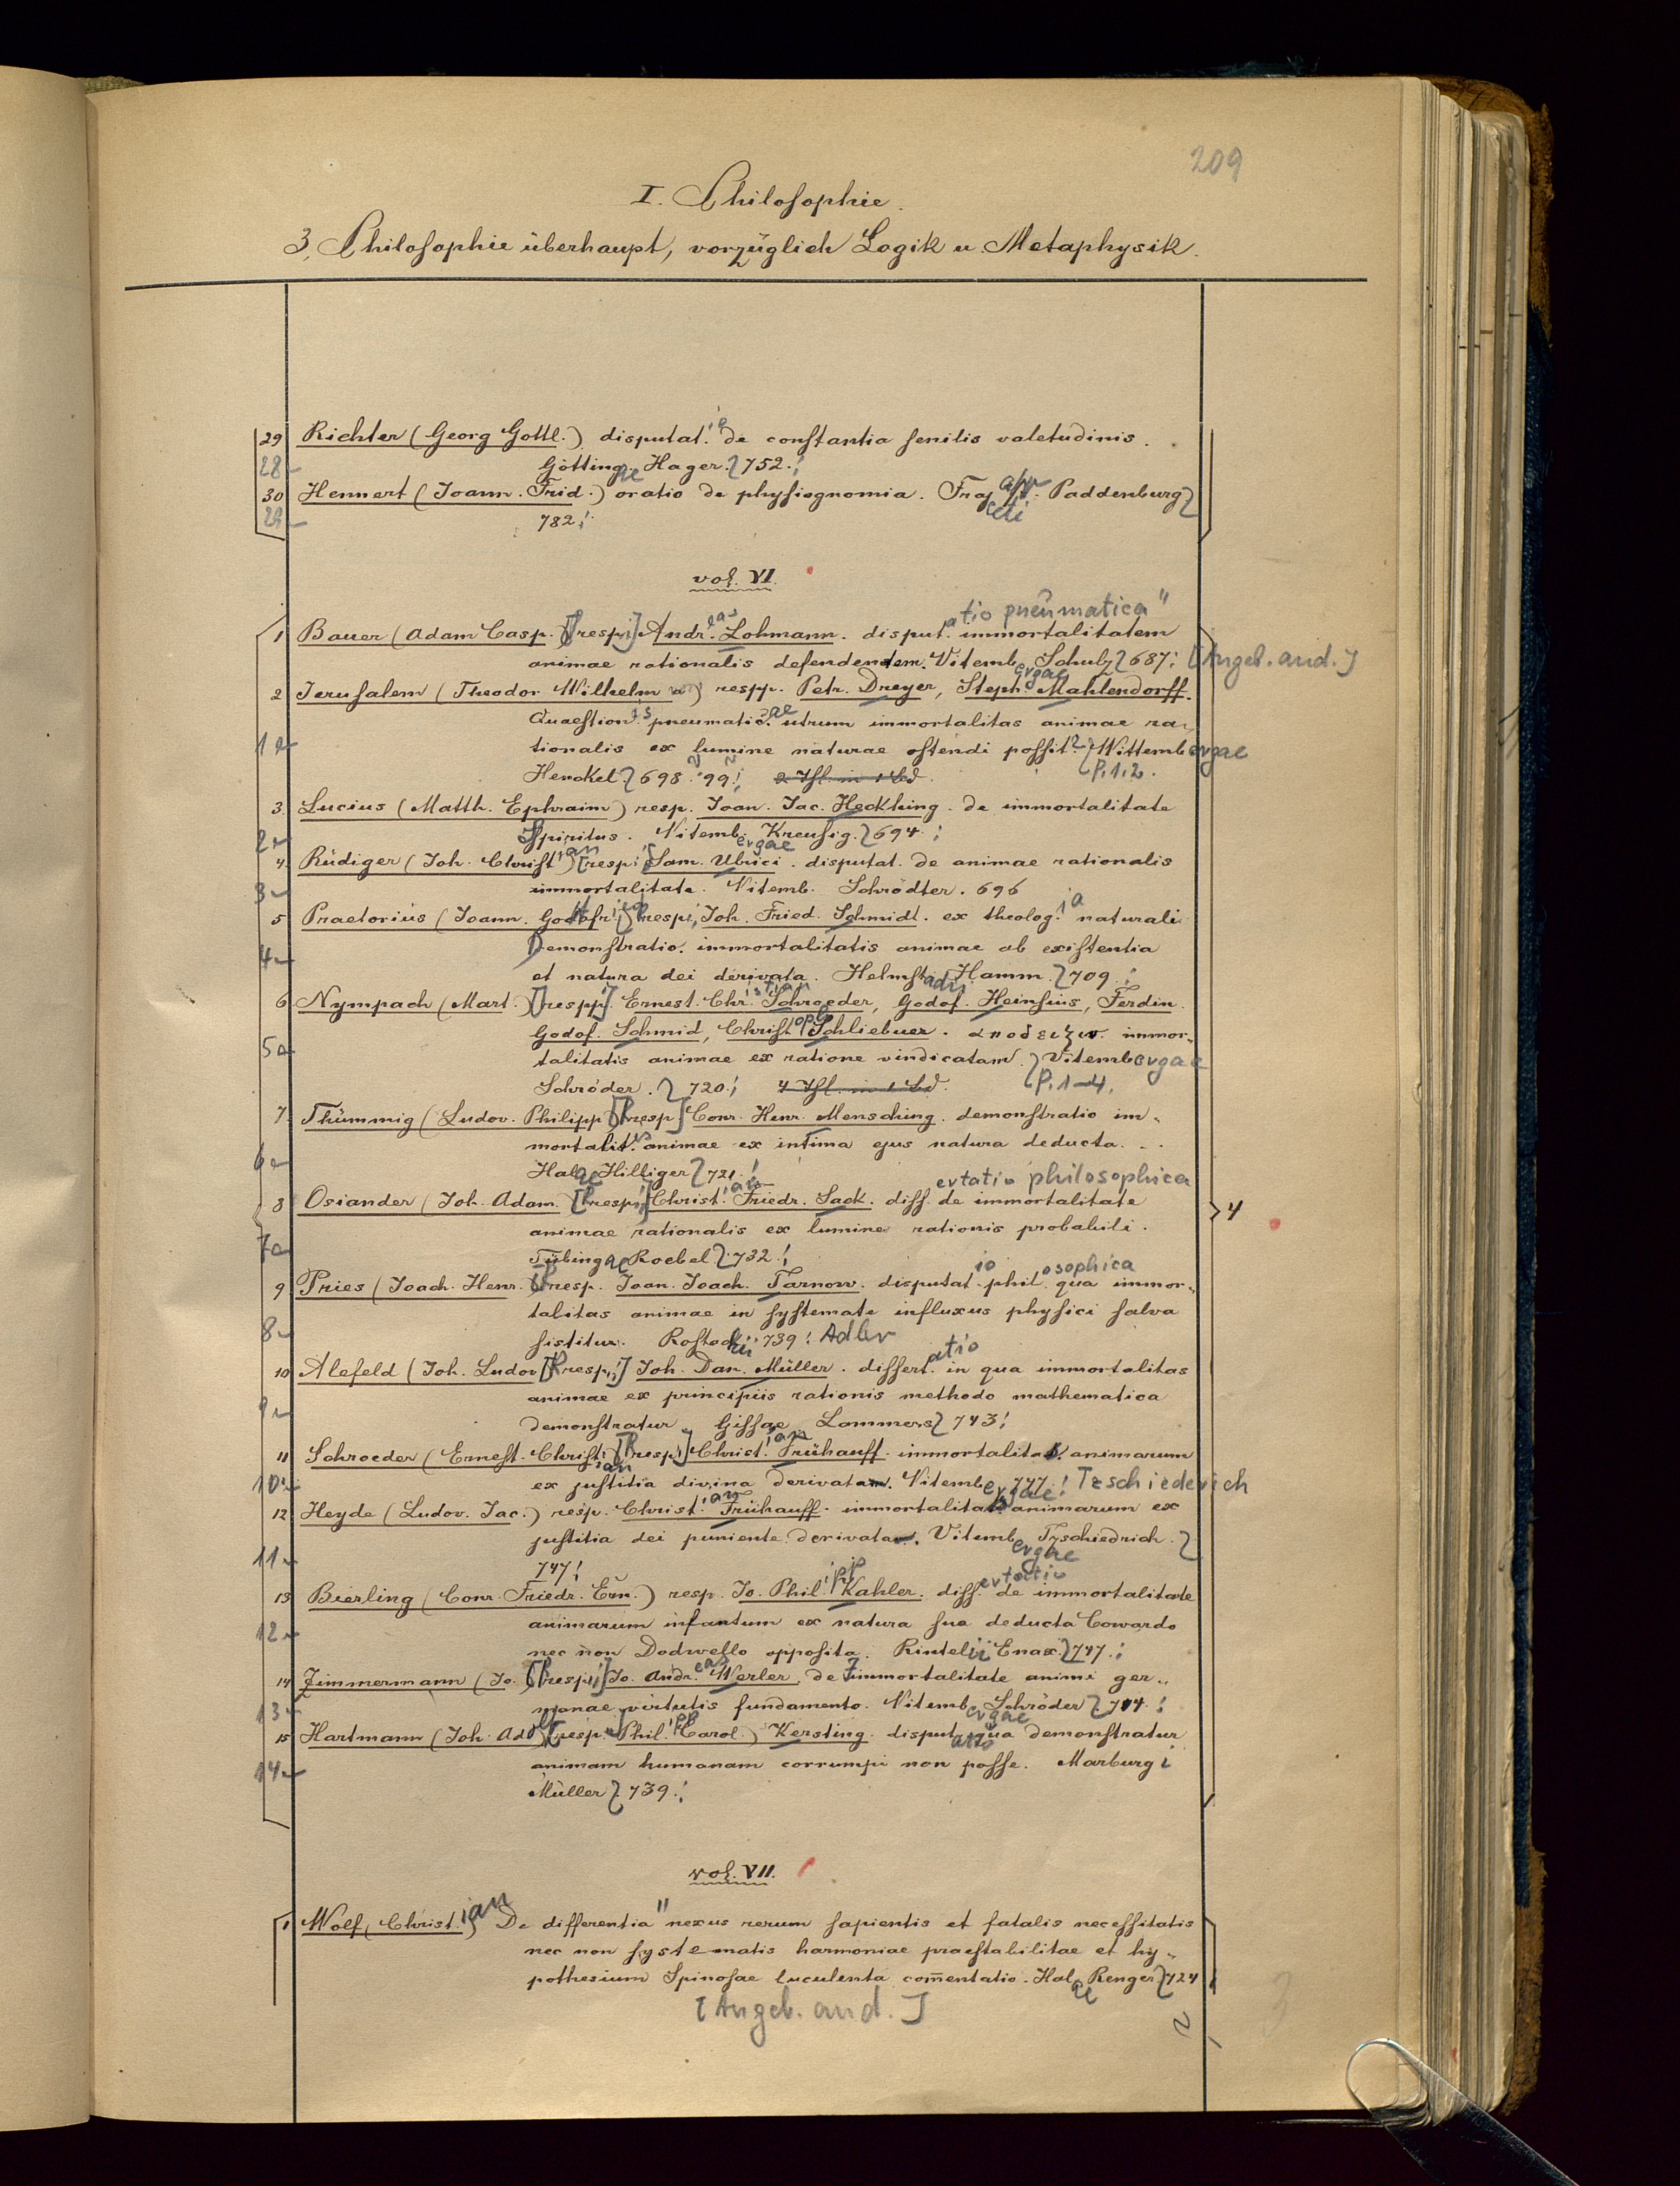 209
I. Philosophie.
3, Philosophie überhaupt, vorzüglich Logik u. Metaphysik.
29 Richter (Georg Gottl.) disputatio de constantia senilis valetudinis.
28 Göttingae Hager. 752.
30 Hennert (Joann. Frid.) oratio de physiognomia. Traj Paddenburg
29 782.
vol. VI.
atio pneumatica"
1 Bauer (Adam Casp.) [resp.] Andreas Lohmann. disput. immortalitatem
animae rationalis defendentem. Vitembergae Schulz 687. [Angeb. and.]
2 Jerusalem (Theodor Wilhelm) respp. Petr. Dreyer, Steph. Mahlendorff.
Quaestionis pneumaticae utrum immortalitas animae ra-
1 tionalis ex lumine naturae ostendi possit? Wittembergae
Henckel 698. 99. 2 Thl. in 1 Bd. P. 1. 2.
3. Lucius (Matth. Ephraim) resp. Joan. Jac. Heckhing. de immortalitate
2 Spiritus. Vitembergae Kreusig. 694.
4. Rüdiger (Joh. Christian) [resp.] Sam. Ulrici. disputat. de animae rationalis
3 immortalitate. Vitemb. Schrödter. 696
5 Praetorius (Joann. Godofr.) resp. Joh. Fried. Schmidt. ex theologia naturali
4 Demonstratio. immortalitatis animae ab existentia
et natura dei derivata. Helmstadii Hamm. 709.
6 Nympach (Mart.) [respp.] Ernest. Christian Schroeder, Godof. Heinsius, Ferdin.
Godof. Schmid, Christoph Schliebner. αποδειξιν immor-
5 talitatis animae ex ratione vindicatam. Vitembergae
Schröder. 720. 4 Thl. in 1 Bd. P. 1-4.
7. Thümmig (Ludov. Philipp) [Resp.] Conr. Henr. Mensching. demonstratio im-
mortalit. animae ex intima ejus natura deducta.
6 Halae Hilliger 721.
ertatio philosophica
8 Osiander (Joh. Adam.) [Resp.] Christian Friedr. Sack. diss. de immortalitate
animae rationalis ex lumine rationis probabili.
7 Tübingae Roebel. 732.
9 Pries (Joach. Henr.) resp. Joan. Joach. Tarnow. disputatio philosophica qua immor-
talitas animae in systemate influxus physici salva
8 sistitur. Rostochii 739. Adler
10 Alefeld (Joh. Ludov) [Resp.] Joh. Dan. Müller. dissertatio in qua immortalitas
animae ex principiis rationis methodo mathematica
9 demonstratur Gissae Lammers 743.
11 Schroeder (Ernest. Christian) [Resp.] Christian Frühauff. immortalitas animarum
10 ex justitia divina derivata. Vitembergae 747. Tzschiederich
12 Heyde (Ludov. Jac.) resp. Christian Frühauff. immortalitas animarum ex
justitia dei puniente derivata. Vitembergae Tzschiedrich.
11 747.
13 Bierling (Conr. Friedr. Ern.) resp. Jo. Philipp Kahler. dissertatio de immortalitate
12 animarum infantum ex natura sua deducta Cowardo
nec non Dodwello opposita. Rintelii Enax. 747.
14 Zimmermann (Jo.) [Resp.] Jo. Andreas Werler. de immortalitate animi ger-
13 manae virtutis fundamento. Vitembergae Schröder 744.
15 Hartmann (Joh. Adolf) [resp.] Phil. Carol. Kersting. disputatio qua demonstratur
14 animam humanam corrumpi non posse. Marburgi
Müller 739.
4
vol. VII.
1 Wolf, Christian De differentia" nexus rerum sapientis et fatalis necessitatis
nec non systematis harmoniae praestabilitae et hy-
pothesium Spinosae luculenta com̄entatio. Halae Renger 724
[Angeb. and.]